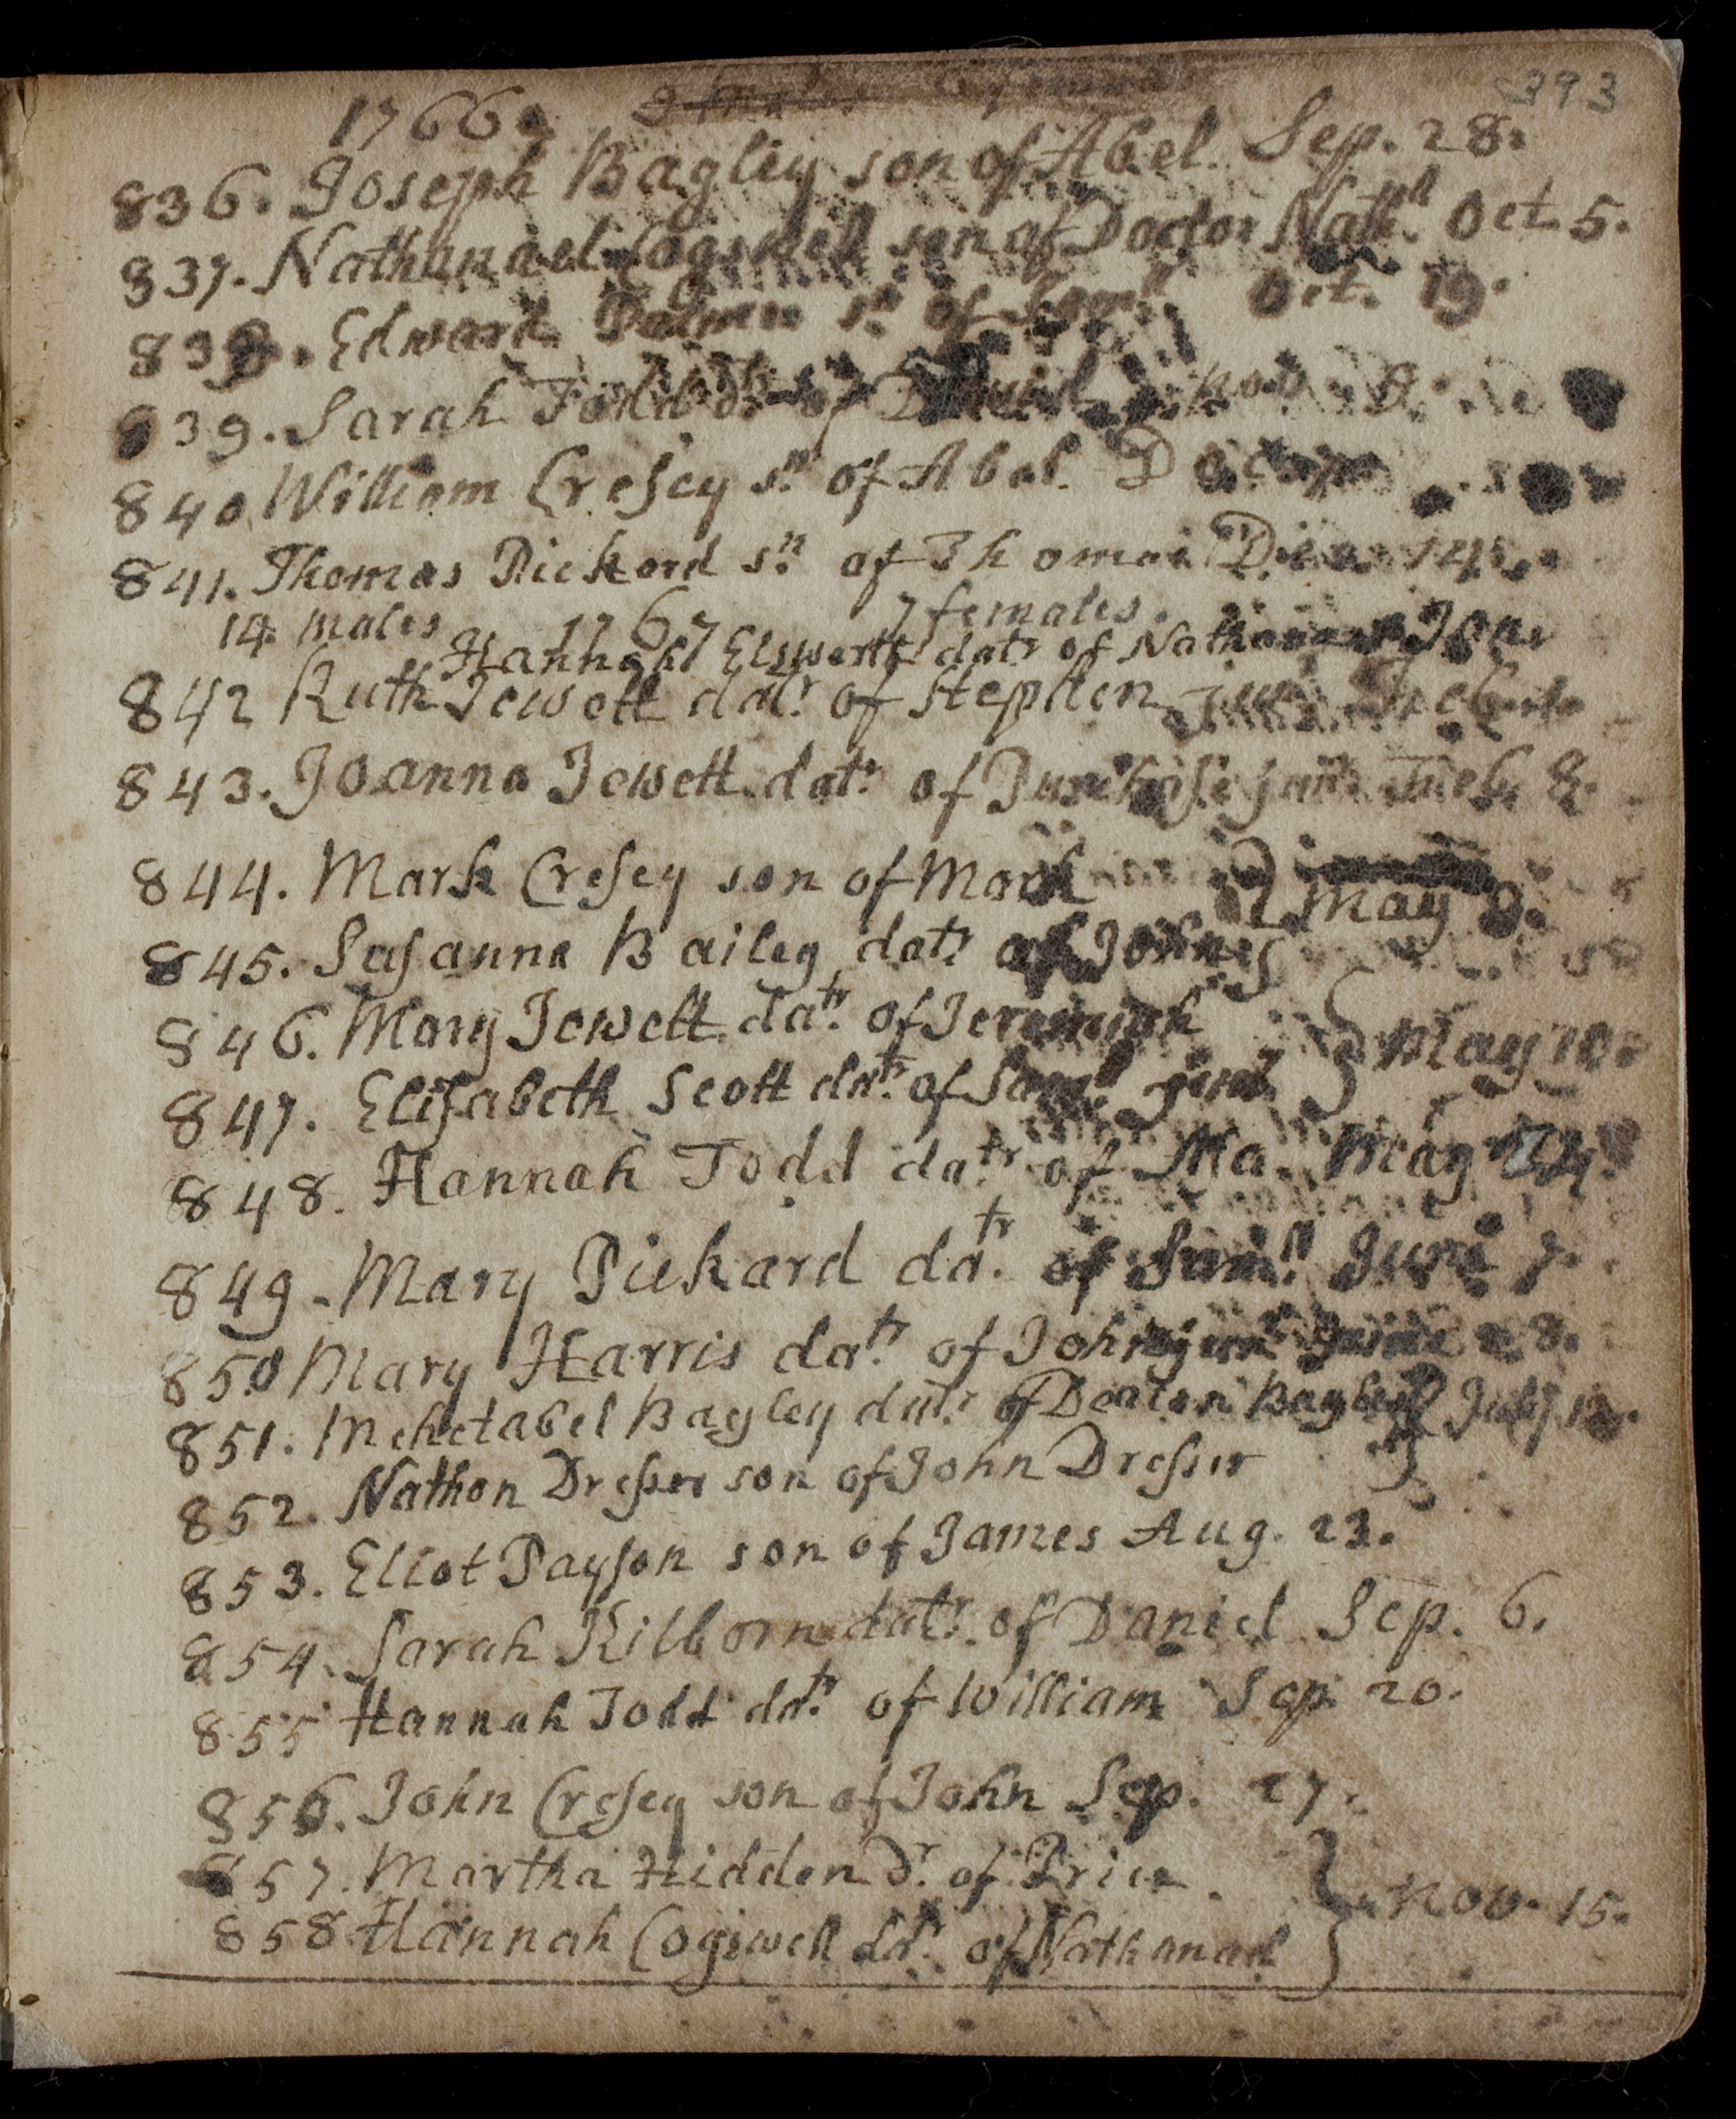 393
1766.
836. Joseph Bagley son of Abel. Sep. 28.
837. Nathanael Cogswell son of Doctor Nath.ll Oct. 5.
838. Edward Palmer s.n of Sam.ll Oct. 19.
839. Sarah Todd of David Nov.
840 William Cresey s.n of Abel. Decem
841. Thomas Pickard s.n of Thomas Dec. 14.
14 males 1767 7 females.
Hannah Elsworth dat.r of Jan.
842 Ruth Jewett dat.r of Stephen jun.r Feb. 1.
843. Joanna Jewett dat.r of jun.r Feb. 8.
844. Mark Cresey son of Mark
845. Susanna Bailey dat.r of } May 3.
846. Mary Jewett da.tr of Jeremiah
847. Elisabeth Scott da.tr of Sam.ll jun.r } May 10.
848. Hannah Todd da.tr of Ma. May 24.
849. Mary Pickard da.tr of Sam.ll June 7.
850 Mary Harris da.tr of John jun.r June 28.
851. Mehetabel Bagley dat.r of Deacon Bagley } July 12.
852. Nathan Dresser son of John Dresser
853. Eliot Payson son of James Aug. 23.
854. Sarah Kilborn dat.r of Daniel Sep. 6.
855 Hannah Todd da.tr of William Sep. 20.
856. John Cresey son of John Sep. 27.
857. Martha Hidden D.r of Price.
858 Hannah Cogswell da.r of Nathanael } Nov. 15.